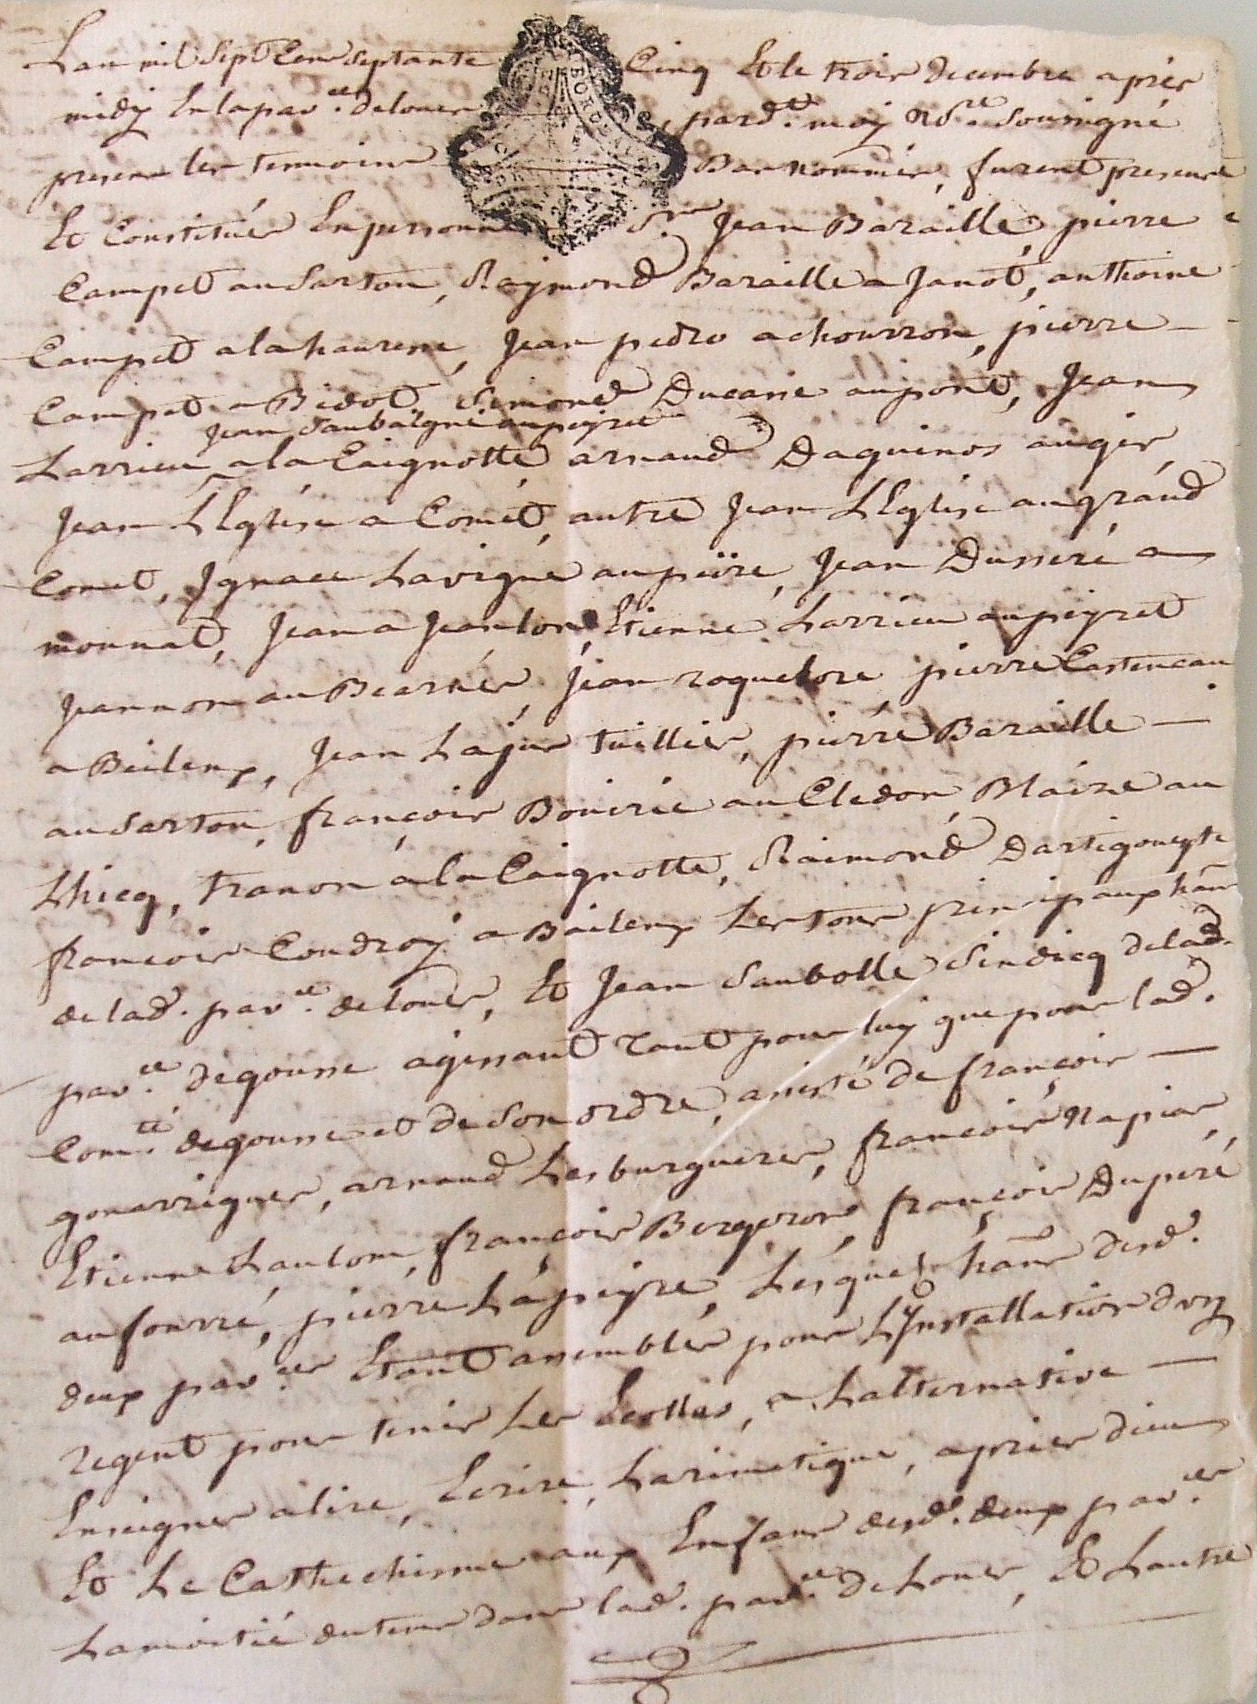 Lan mil Sept Cens septante Cinq Et le trois decembre apres
midy En la parr.ce de louer, pard.t moy No.re Soussigné
presens les temmoins Bas nommés, furent presens
Et Constitués En personne S.r Jean Baraille, pierre
Campet au Sartou, Raymond Baraille a Janot, anthoine
Campet a la haurene, Jean pedro a chourron, pierre
Campet a Bidot, Simond Ducasse au pont, Jean
Jean Saubaigné au peyre
Larrieu a la Caignotte arnaud Daguinos augir
Jean LEglise a Comet, autre Jean LEglise au grand
Comet, Ignace Lavigne au peÿre, Jean Dusseré a
monnat, Jean a Jeanton, Etienne Larrieu au peyret
Jeannon au Bearnés, Jean roquelore pierre Castencau
a Beilenx, Jean Lajus tuillier, pierre Baraille
au Sartou, françois Bouirie au Cledon, Blaize au
Lhicq, tranon a la Caignotte, Raimond Dartigoueyte
françois Coudroy a Bailenx Les tous principaux han
de lad. parr.ce de louer, Et Jean Saubolle Sindicq de lad.
parr.ce degousse agissant tant pour luy que pour lad.
Com.té degousse et de Son ordre, assisté de françois
gouarrigues, arnaud Lesburgueres, françois Napias,
Etienne Laulom, françois Bergeron, françois Duperé
au fourré, pierre Lapeyre, Lesquels hans desd.
deux parr.ces Etant assemblés pour LInstallation dun
regent pour tenir Les Ecolles, a Lalternative
Enseigner a lire, Ecrire, Larimetique, a prier dieu
Et Le Cathechisme aux Enfans desd. deux parr.ces
La moitié du tems dans lad. parr.ce de Louer, Et Lautre